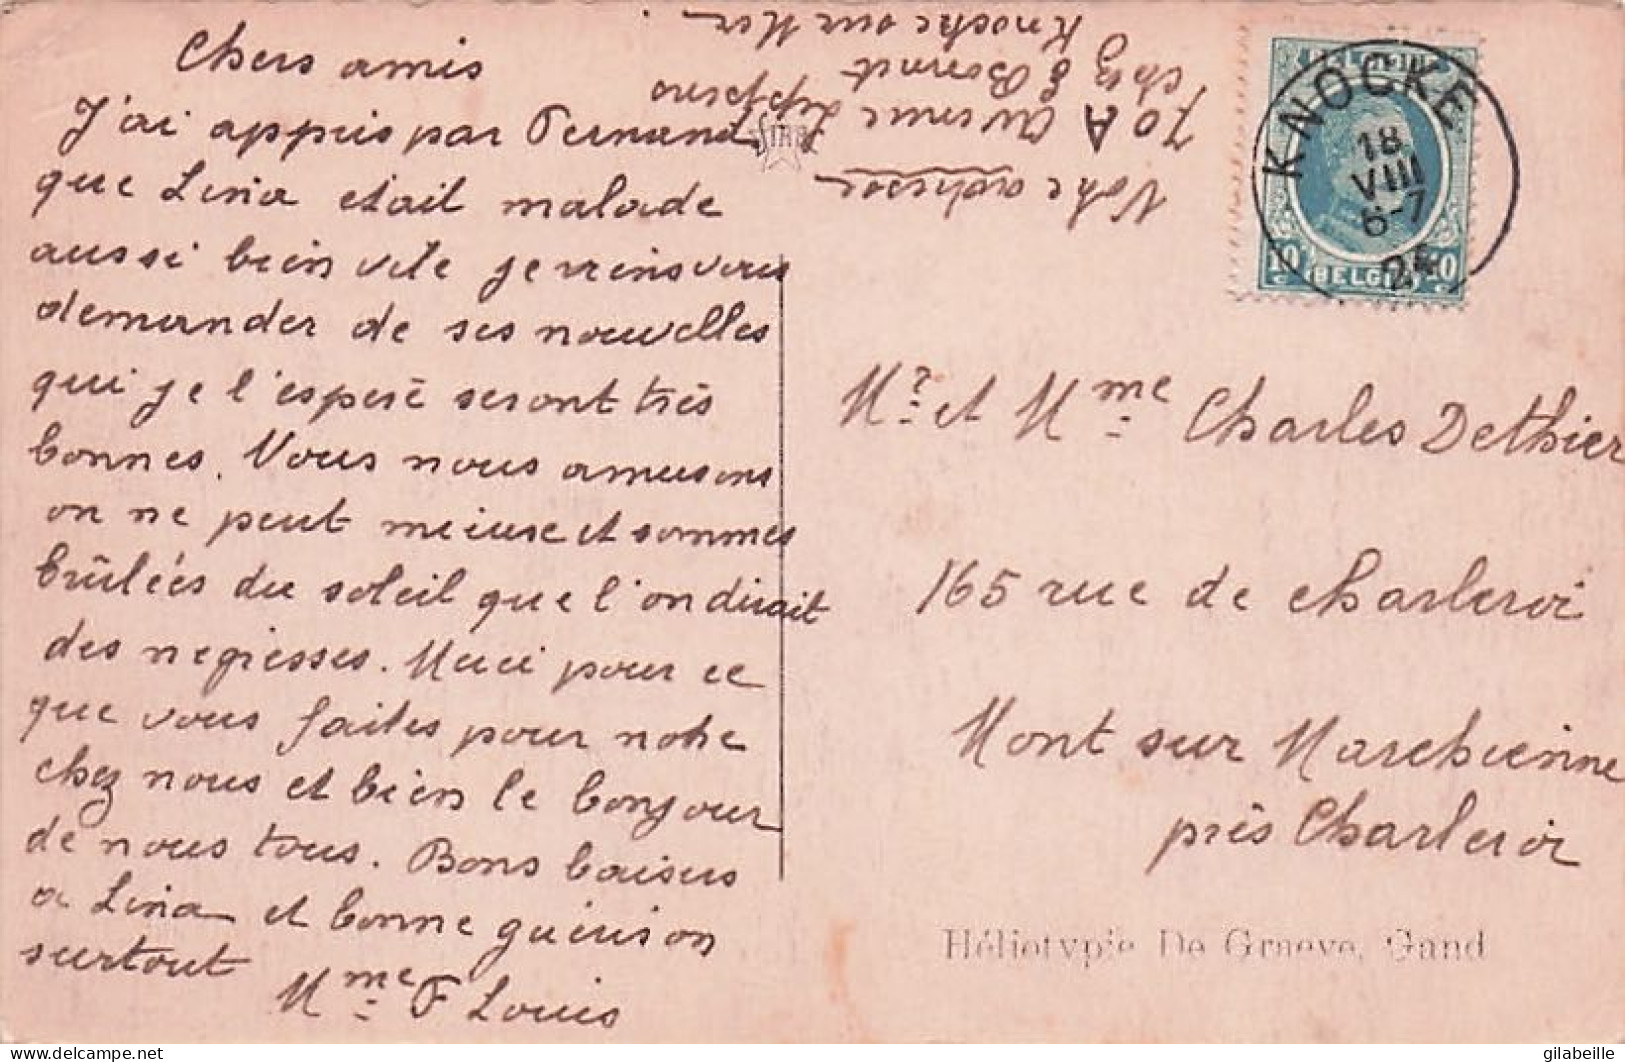 Chers amis
J'ai appris par Fernand
que Lina était malade
aussi bien vite je viens vous
demander de ses nouvelles
qui je l'espère seront très
bonnes. Nous nous amusons
on ne peut mieux et sommes
brûlées du soleil que l'on dirait
des negresses. Merci pour ce
que vous faites pour notre
chez nous et bien le bonjour
de nous tous. Bons baisers
a Lina et bonne guérison
surtout
Mme F Louis
Notre adresse
70A Avenue Lippens
chez E
Knocke sur Mer
KNOCKE
18
VIII
6-7
BELGI
10
Mr et Mme Charles Dethier
165 rue de Charleroi
Mont sur Marchienne
près Charleroi
Héliotypie De Graeve, Gand
delcampe.net
gilabeille